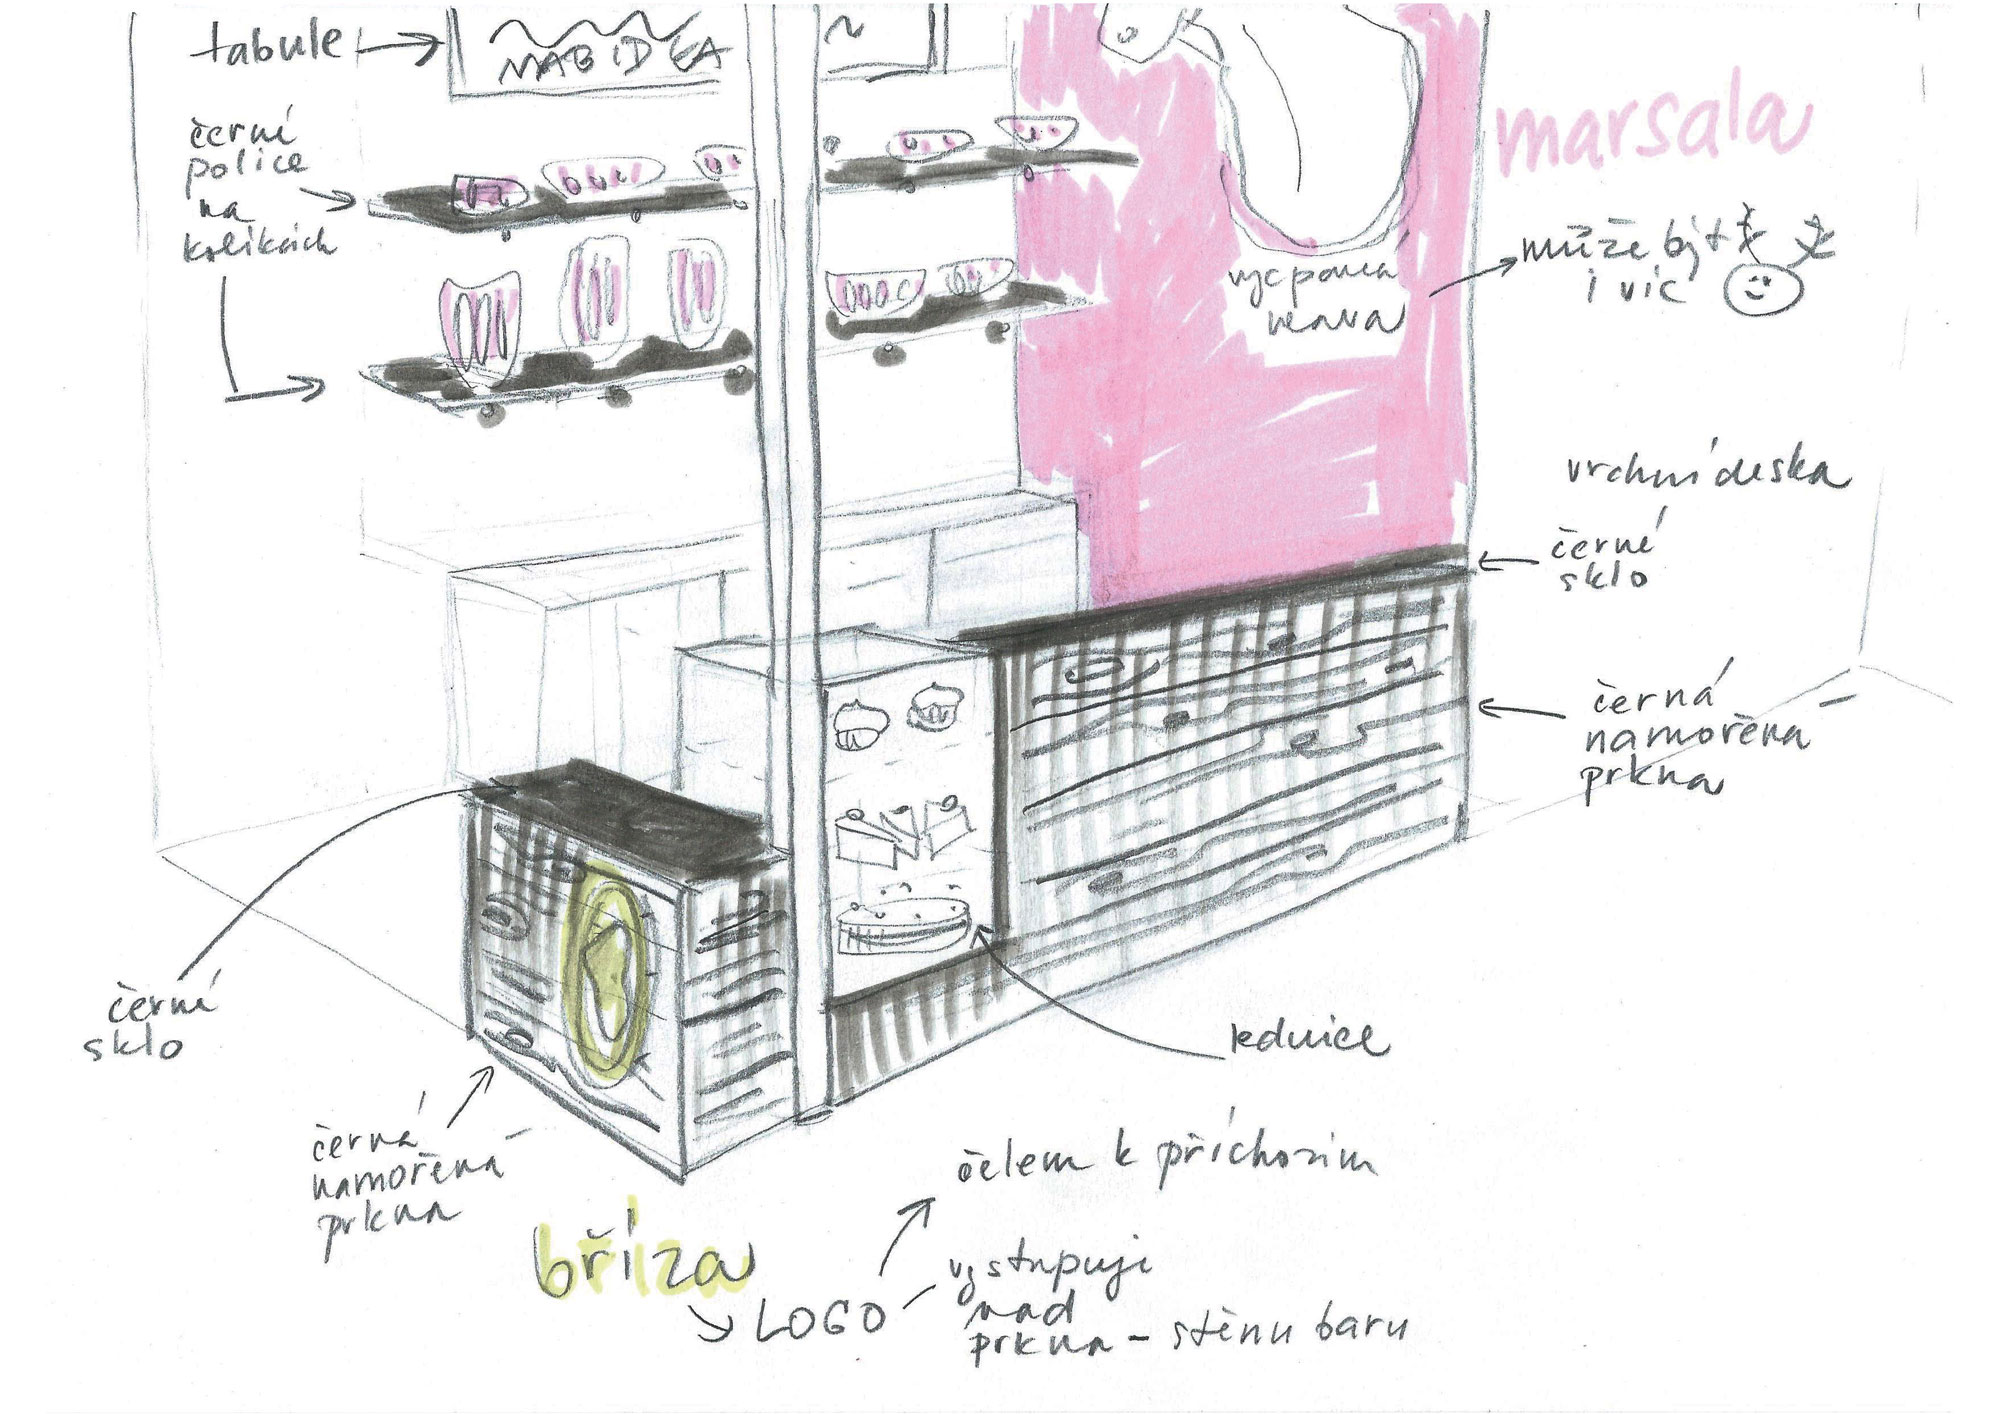 tabule
NABIDKA
černé
police
na
kolíkách
marsala
může být
i víc
vycpaná
hlava
vrchní deska
černé
sklo
černá
namořena
prkna
černé
sklo
lednice
černá
namořena
prkna
čelem k příchozím
bříza
LOGO
vystupuje
nad
prkna - stěnu baru